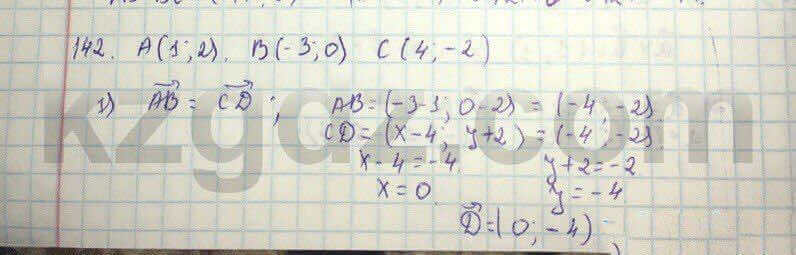 142. A(1;2). B(-3;0) C(4;-2)
1) AB = CD; AB=(-3-1; 0-2) = (-4; -2).
CD=(x-4; y+2)=(-4; -2).
x-4=-4. y+2=-2
x=0. y=-4
D=(0; -4)
kzgdz.com